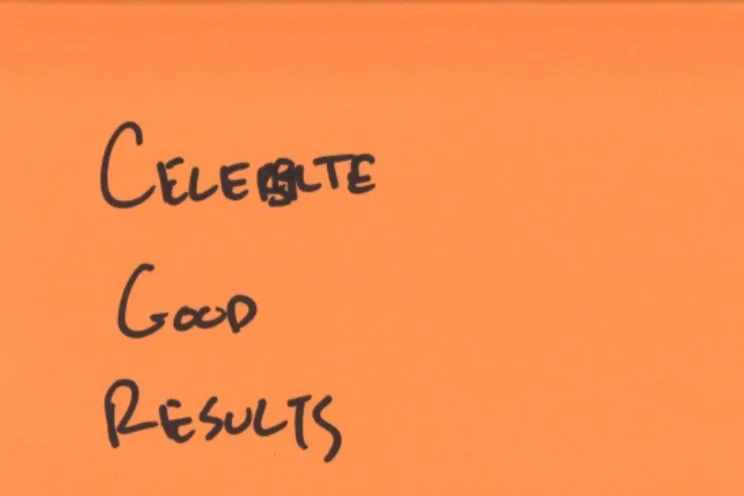 CELEBRATE
GOOD
RESULTS